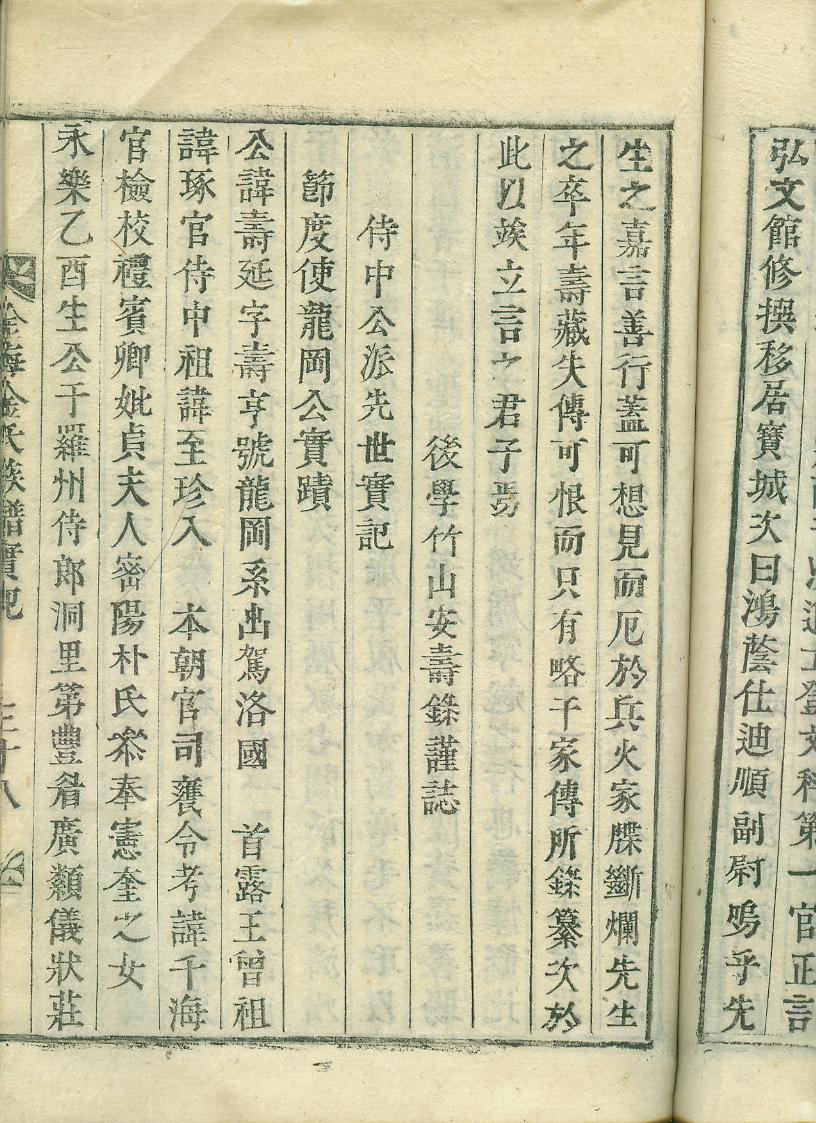 登文科第一官正言
弘文館修撰移居寶城次曰鴻蔭仕迪順副尉嗚乎先
生之嘉言善行蓋可想見而厄於兵火家牒斷爛先生
之卒年壽藏失傳可恨而只有略干家傳所錄纂次於
此以竢立言之君子焉
後學竹山安壽錄謹誌
侍中公派先世實記
節度使龍岡公實蹟
公諱壽延字壽亨號龍岡系出駕洛國 首露王曾祖
諱琢官侍中祖諱至珍入 本朝官司饔令考諱千海
官檢校禮賓卿妣貞夫人密陽朴氏 奉憲奎之女
永樂乙酉生公于羅州侍郎洞里第豐眉廣顙儀狀莊
金海金氏族譜實記 三十八